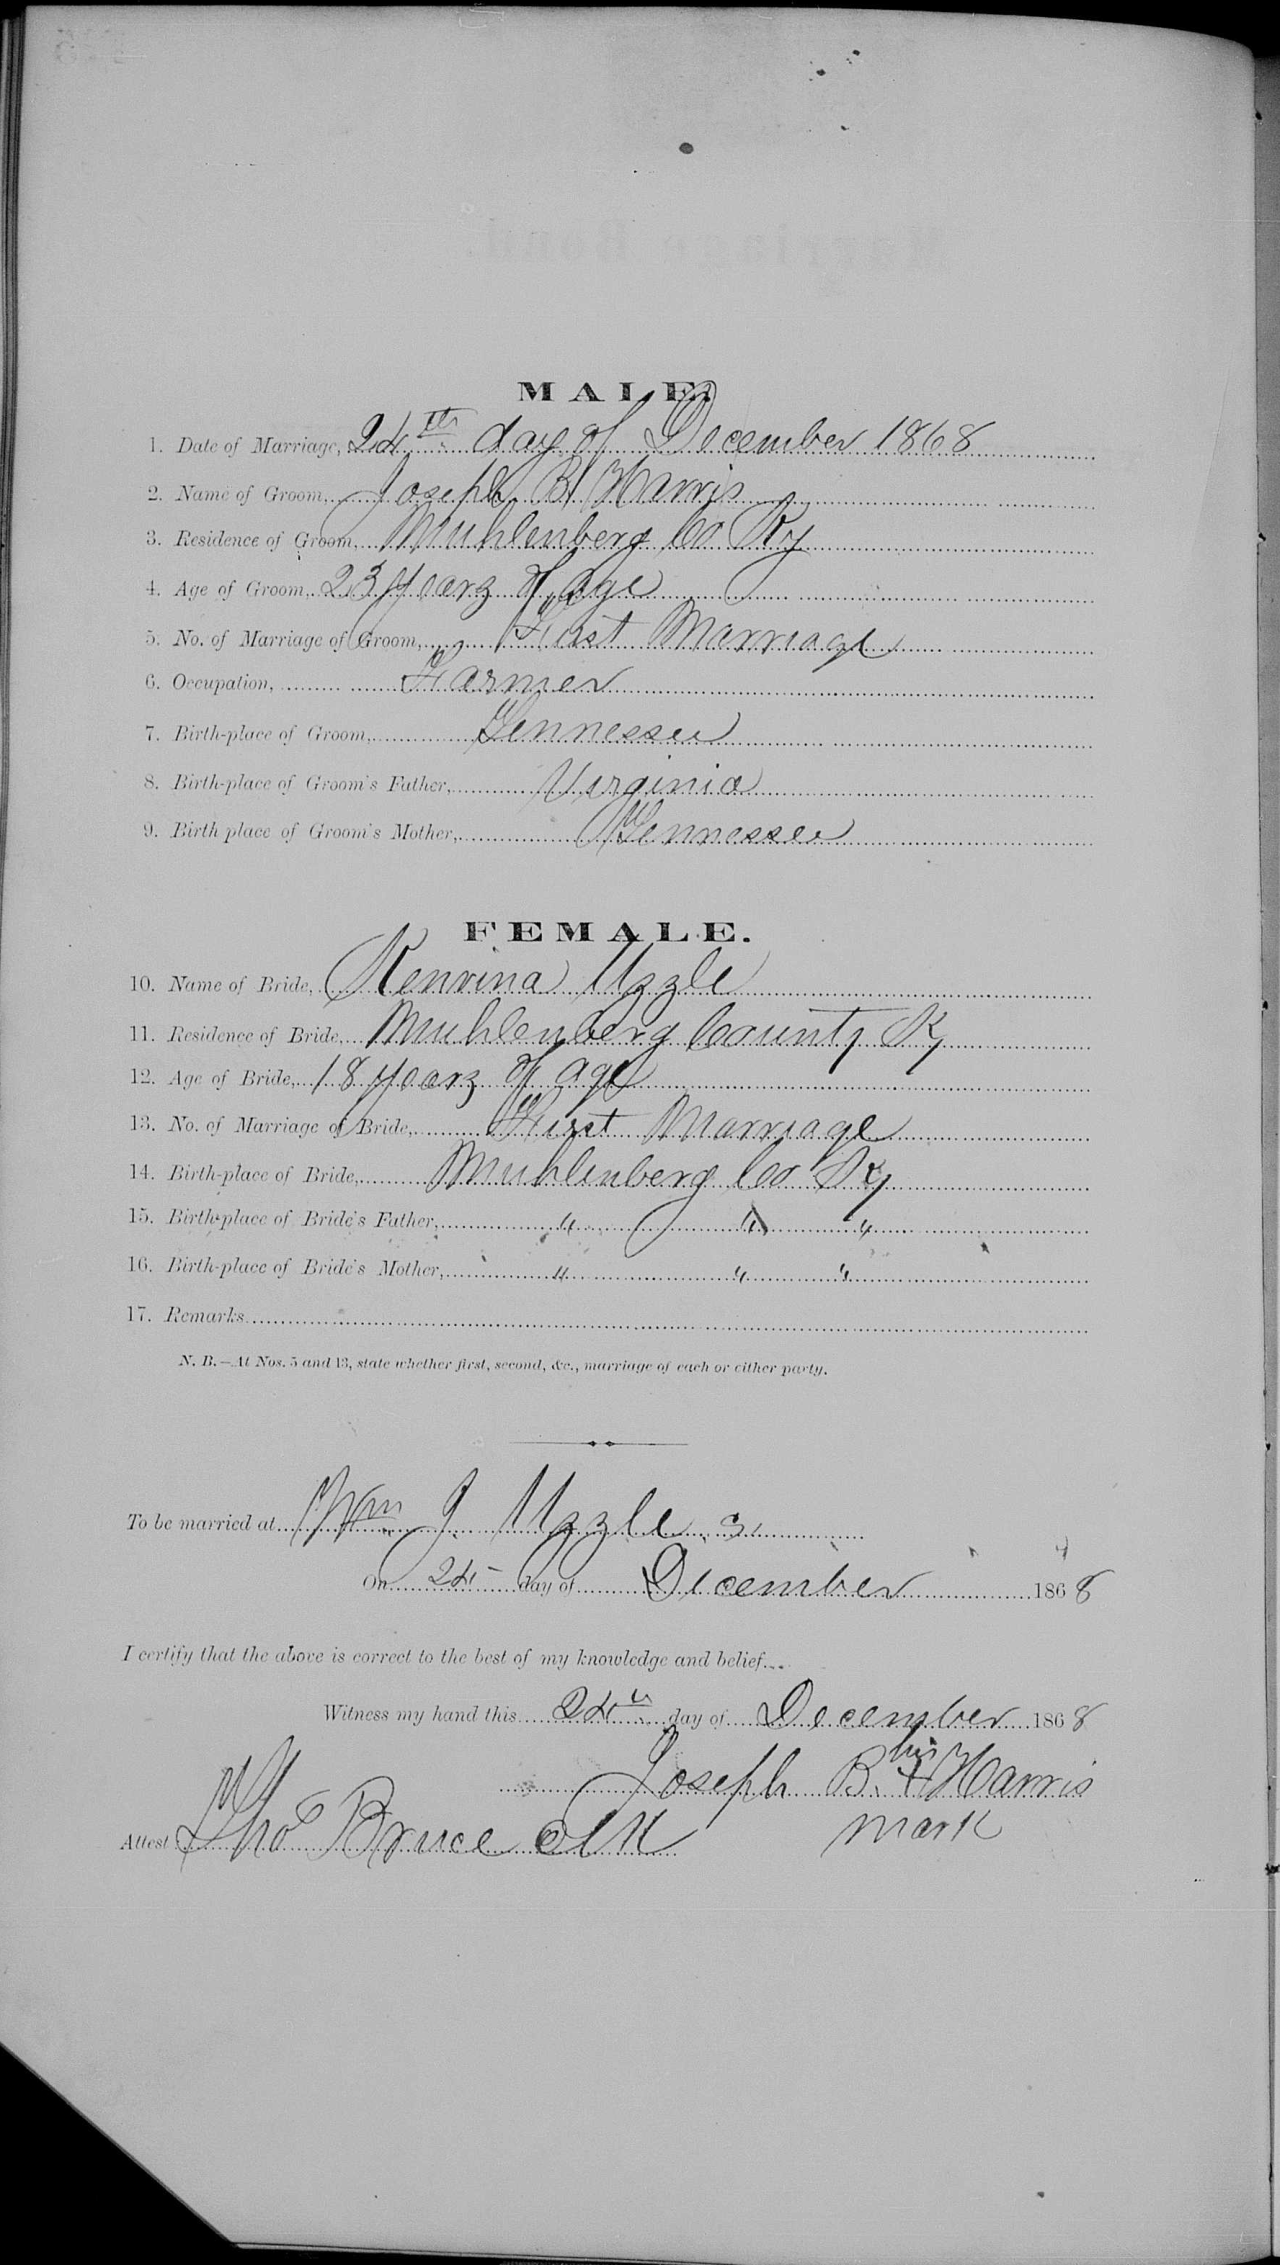 MALE.
1. Date of Marriage, 24th day of December 1868
2. Name of Groom, Joseph B Harris
3. Residence of Groom, Muhlenberg Co Ky
4. Age of Groom, 23 years of age
5. No. of Marriage of Groom, First Marriage
6. Occupation, Farmer
7. Birth-place of Groom, Tennessee
8. Birth-place of Groom's Father, Virginia
9. Birth place of Groom's Mother, Tennessee
FEMALE.
10. Name of Bride, Uzzle
11. Residence of Bride, Muhlenberg County Ky
12. Age of Bride, 18 years of age
13. No. of Marriage of Bride, First Marriage
14. Birth-place of Bride, Muhlenberg Co Ky
15. Birth-place of Bride's Father, " " "
16. Birth-place of Bride's Mother, " " "
17. Remarks
N. B.—At Nos. 5 and 13, state whether first, second, &c., marriage of each or either party.
To be married at Wm J. Uzzle s
On 24 day of December 1868
I certify that the above is correct to the best of my knowledge and belief.
Witness my hand this 24th day of December 1868
his
Joseph B. X Harris
mark
Attest Tho Bruce clk